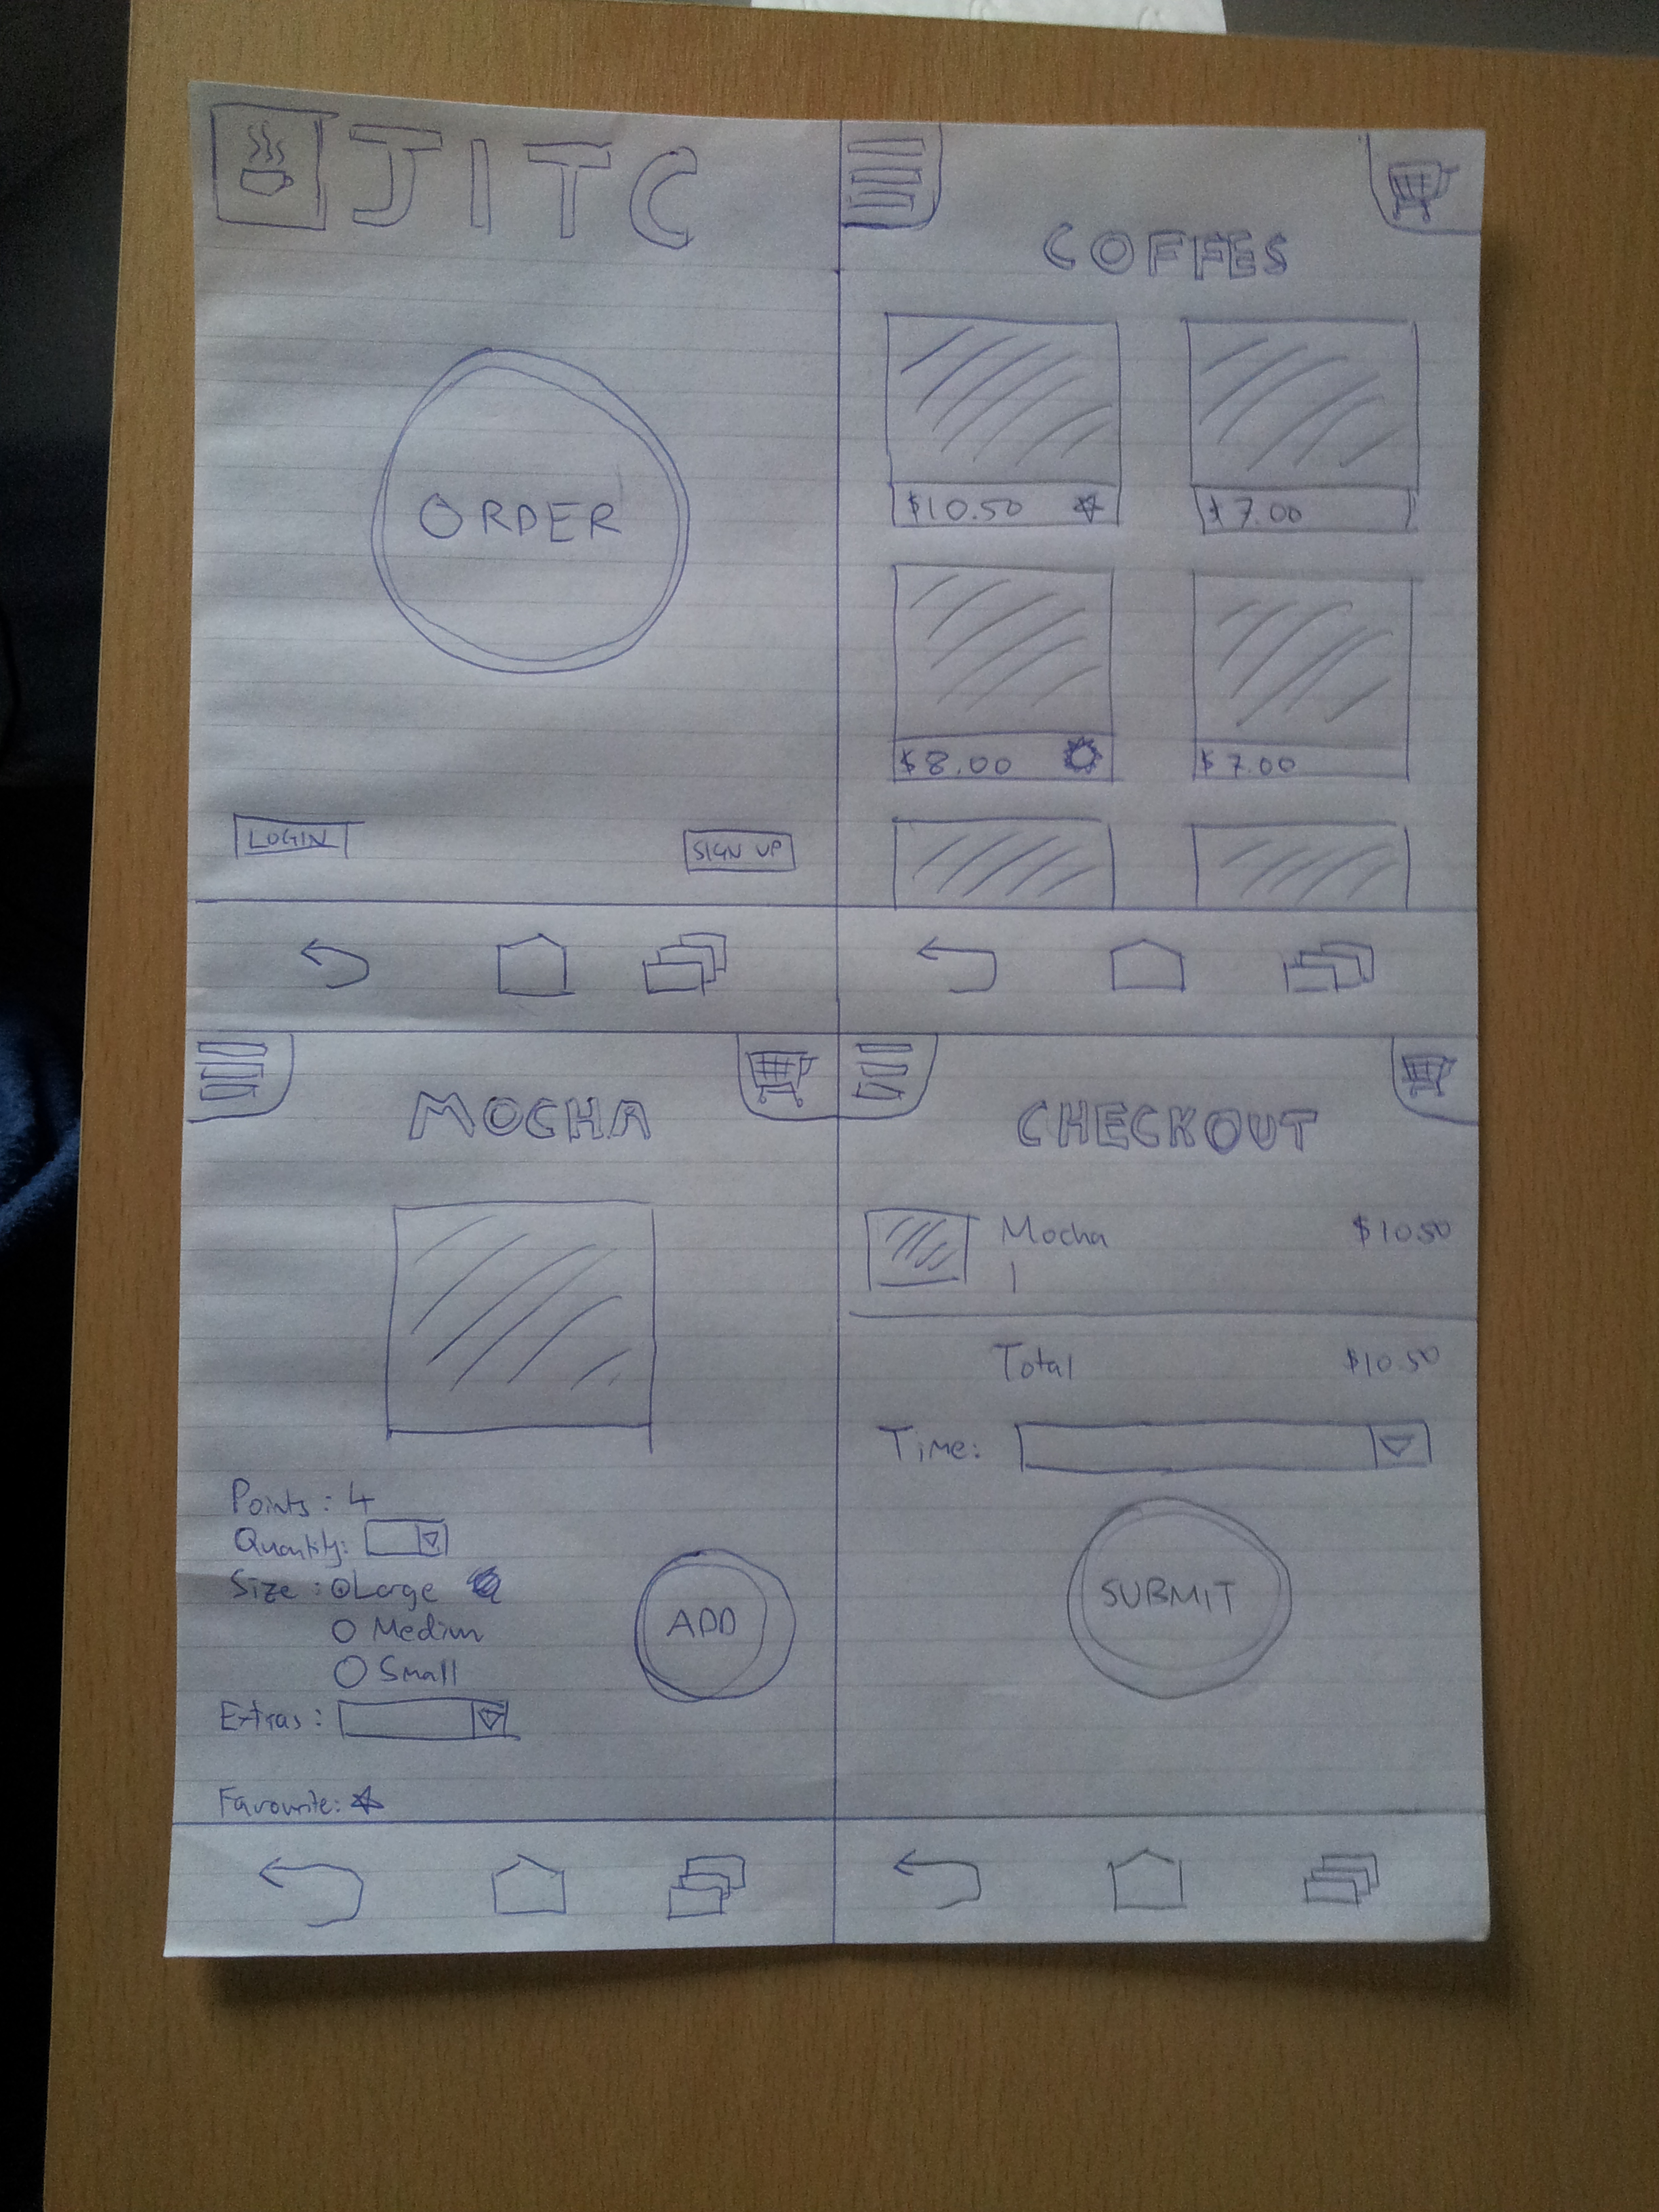 JITC
ORDER
LOGIN
SIGN UP
COFFES
$10.50
$7.00
$8.00
$7.00
MOCHA
Points: 4
Quantity:
Size: Large
Medium
Small
Extras:
Favourite:
ADD
CHECKOUT
Mocha $10.50
1
Total $10.50
Time:
SUBMIT